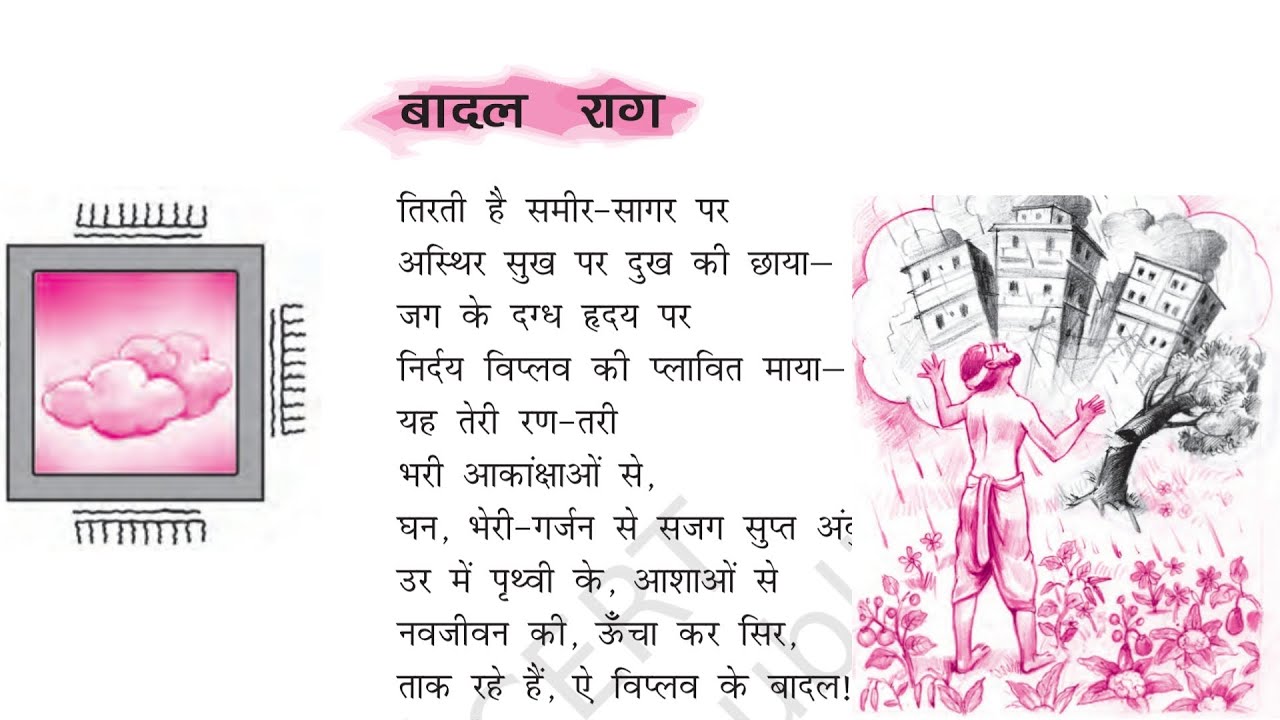 बादल राग
तिरती है समीर-सागर पर
अस्थिर सुख पर दुख की छाया—
जग के दग्ध हृदय पर
निर्दय विप्लव की प्लावित माया—
यह तेरी रण-तरी
भरी आकांक्षाओं से,
घन, भेरी-गर्जन से सजग सुप्त
उर में पृथ्वी के, आशाओं से
नवजीवन की, ऊँचा कर सिर,
ताक रहे हैं, ऐ विप्लव के बादल!